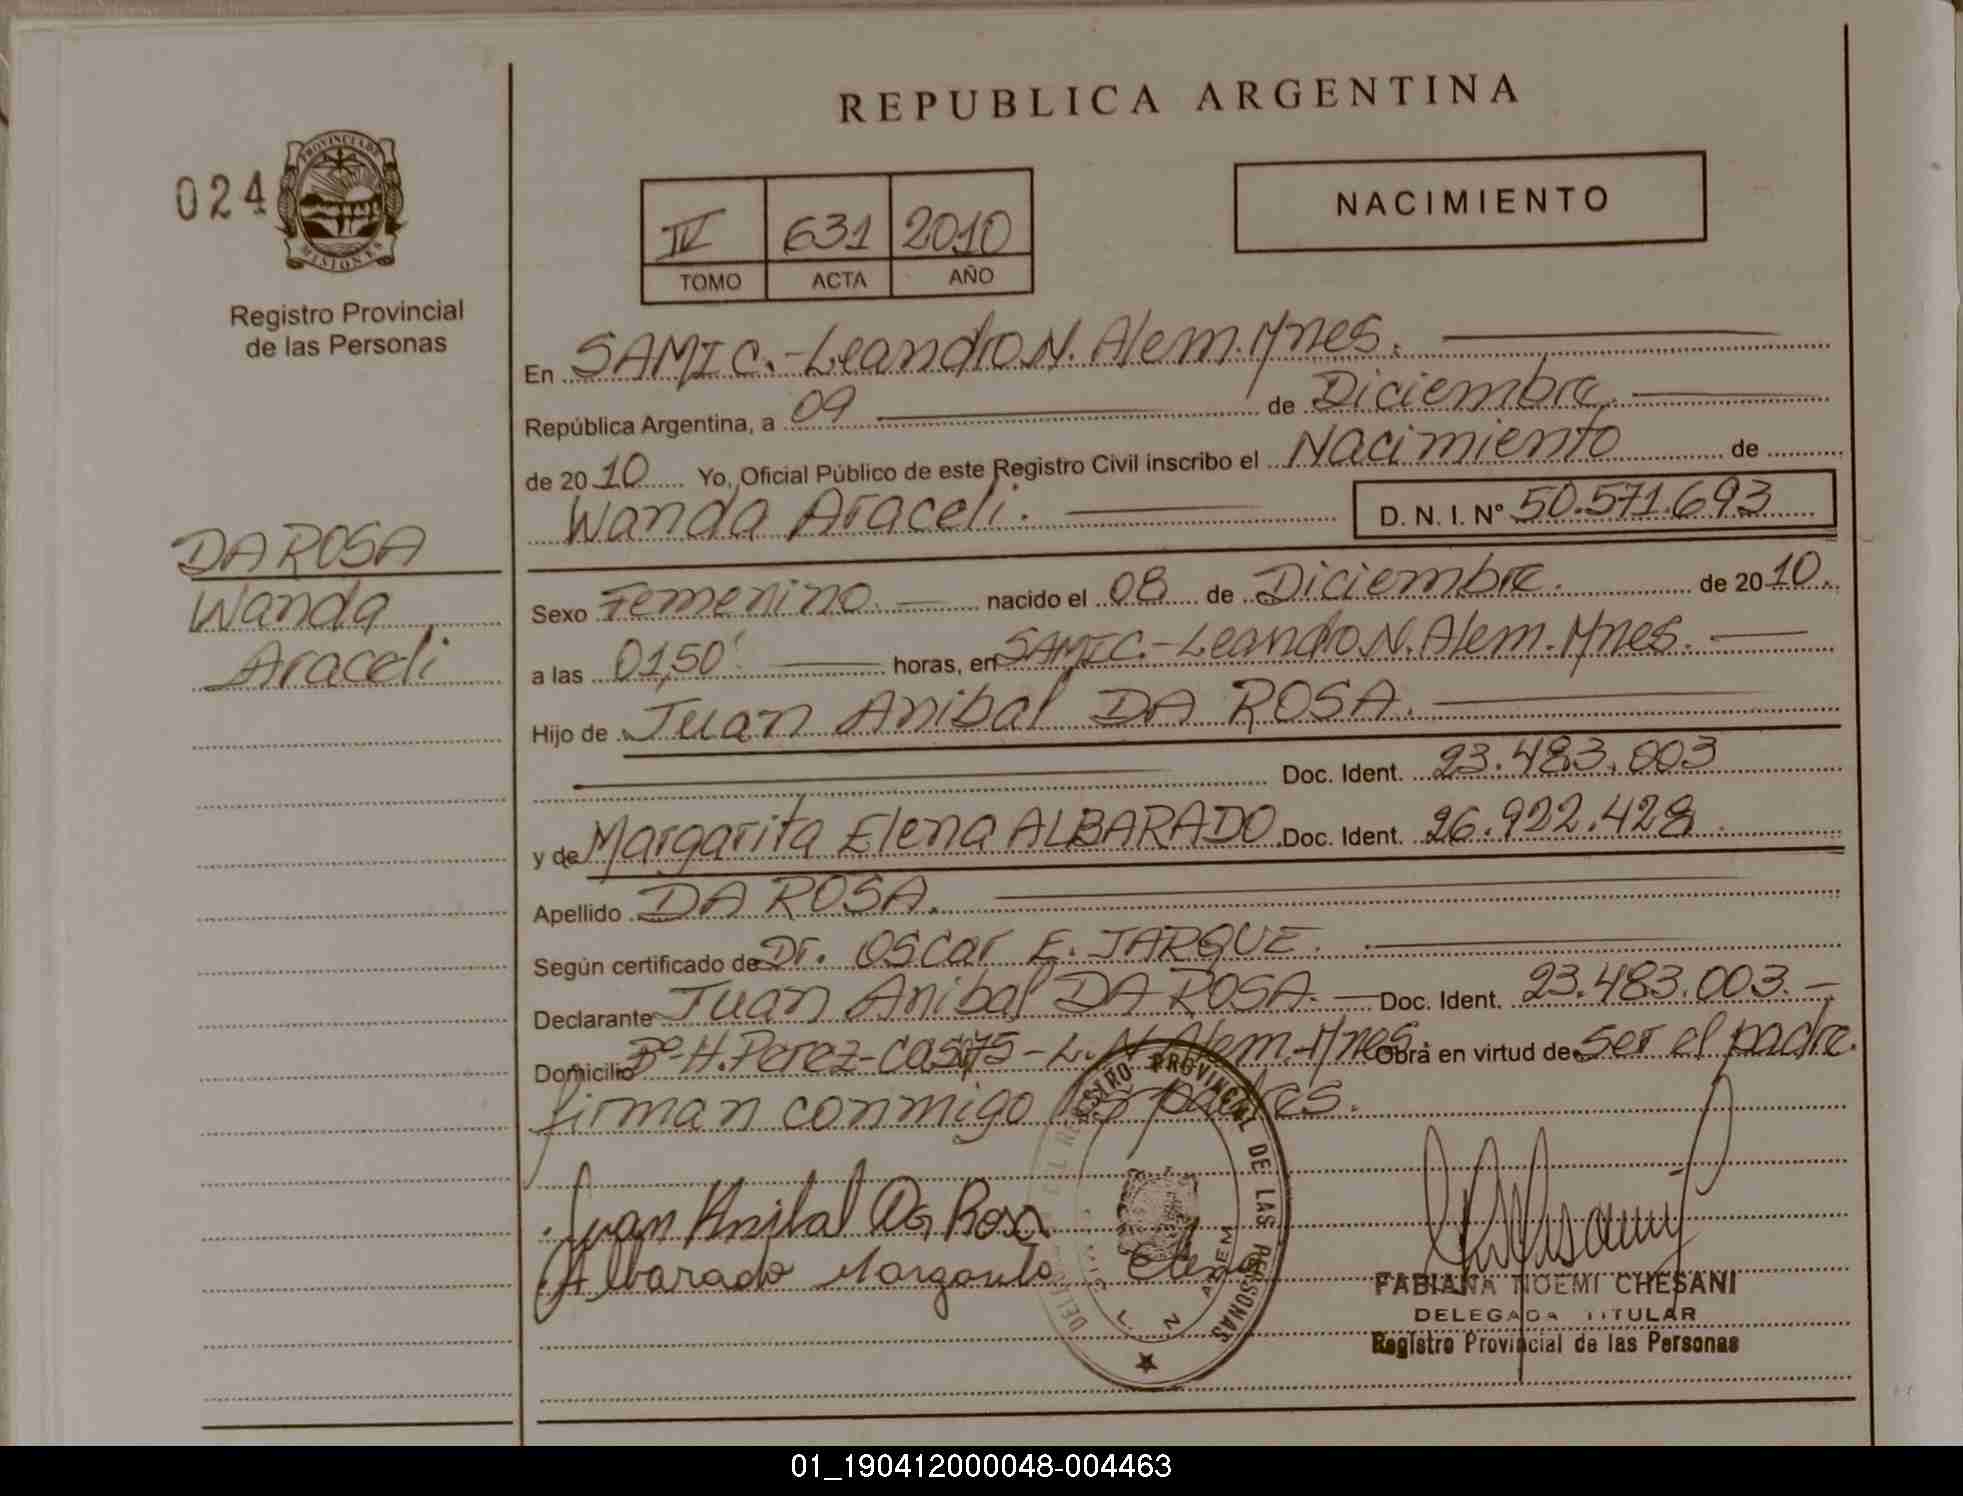 REPUBLICA ARGENTINA
024
PROVINCIA DE
MISIONES
Registro Provincial
de las Personas
IV 631 2010
TOMO ACTA AÑO
NACIMIENTO
En SAMIC.-Leandro N. Alem. Mnes.
República Argentina, a 09 de Diciembre.
de 2010 Yo, Oficial Público de este Registro Civil inscribo el Nacimiento de
Wanda Araceli. D. N. I. N° 50.571.693
DA ROSA
Wanda
Araceli
Sexo Femenino. nacido el 08 de Diciembre. de 2010.
a las 01,50' horas, en SAMIC.-Leandro N. Alem. Mnes.
Hijo de Juan Anibal DA ROSA.
Doc. Ident. 23.483.003
y de Margarita Elena ALBARADO. Doc. Ident. 26.922.428.
Apellido DA ROSA.
Según certificado de Dr. Oscar E. JARQUE.
Declarante Juan Anibal DA ROSA.- Doc. Ident. 23.483.003.-
Domicilio B°-H. Perez-Cas -L.N. Alem.-Mnes. Obra en virtud de ser el padre.
firman conmigo los padres.
Juan Anibal Da Rosa
Albarado Margarita Elena
REGISTRO PROVINCIAL DE LAS PERSONAS
L. N. ALEM
FABIANA NOEMI CHESANI
DELEGADA TITULAR
Registro Provincial de las Personas
01_190412000048-004463